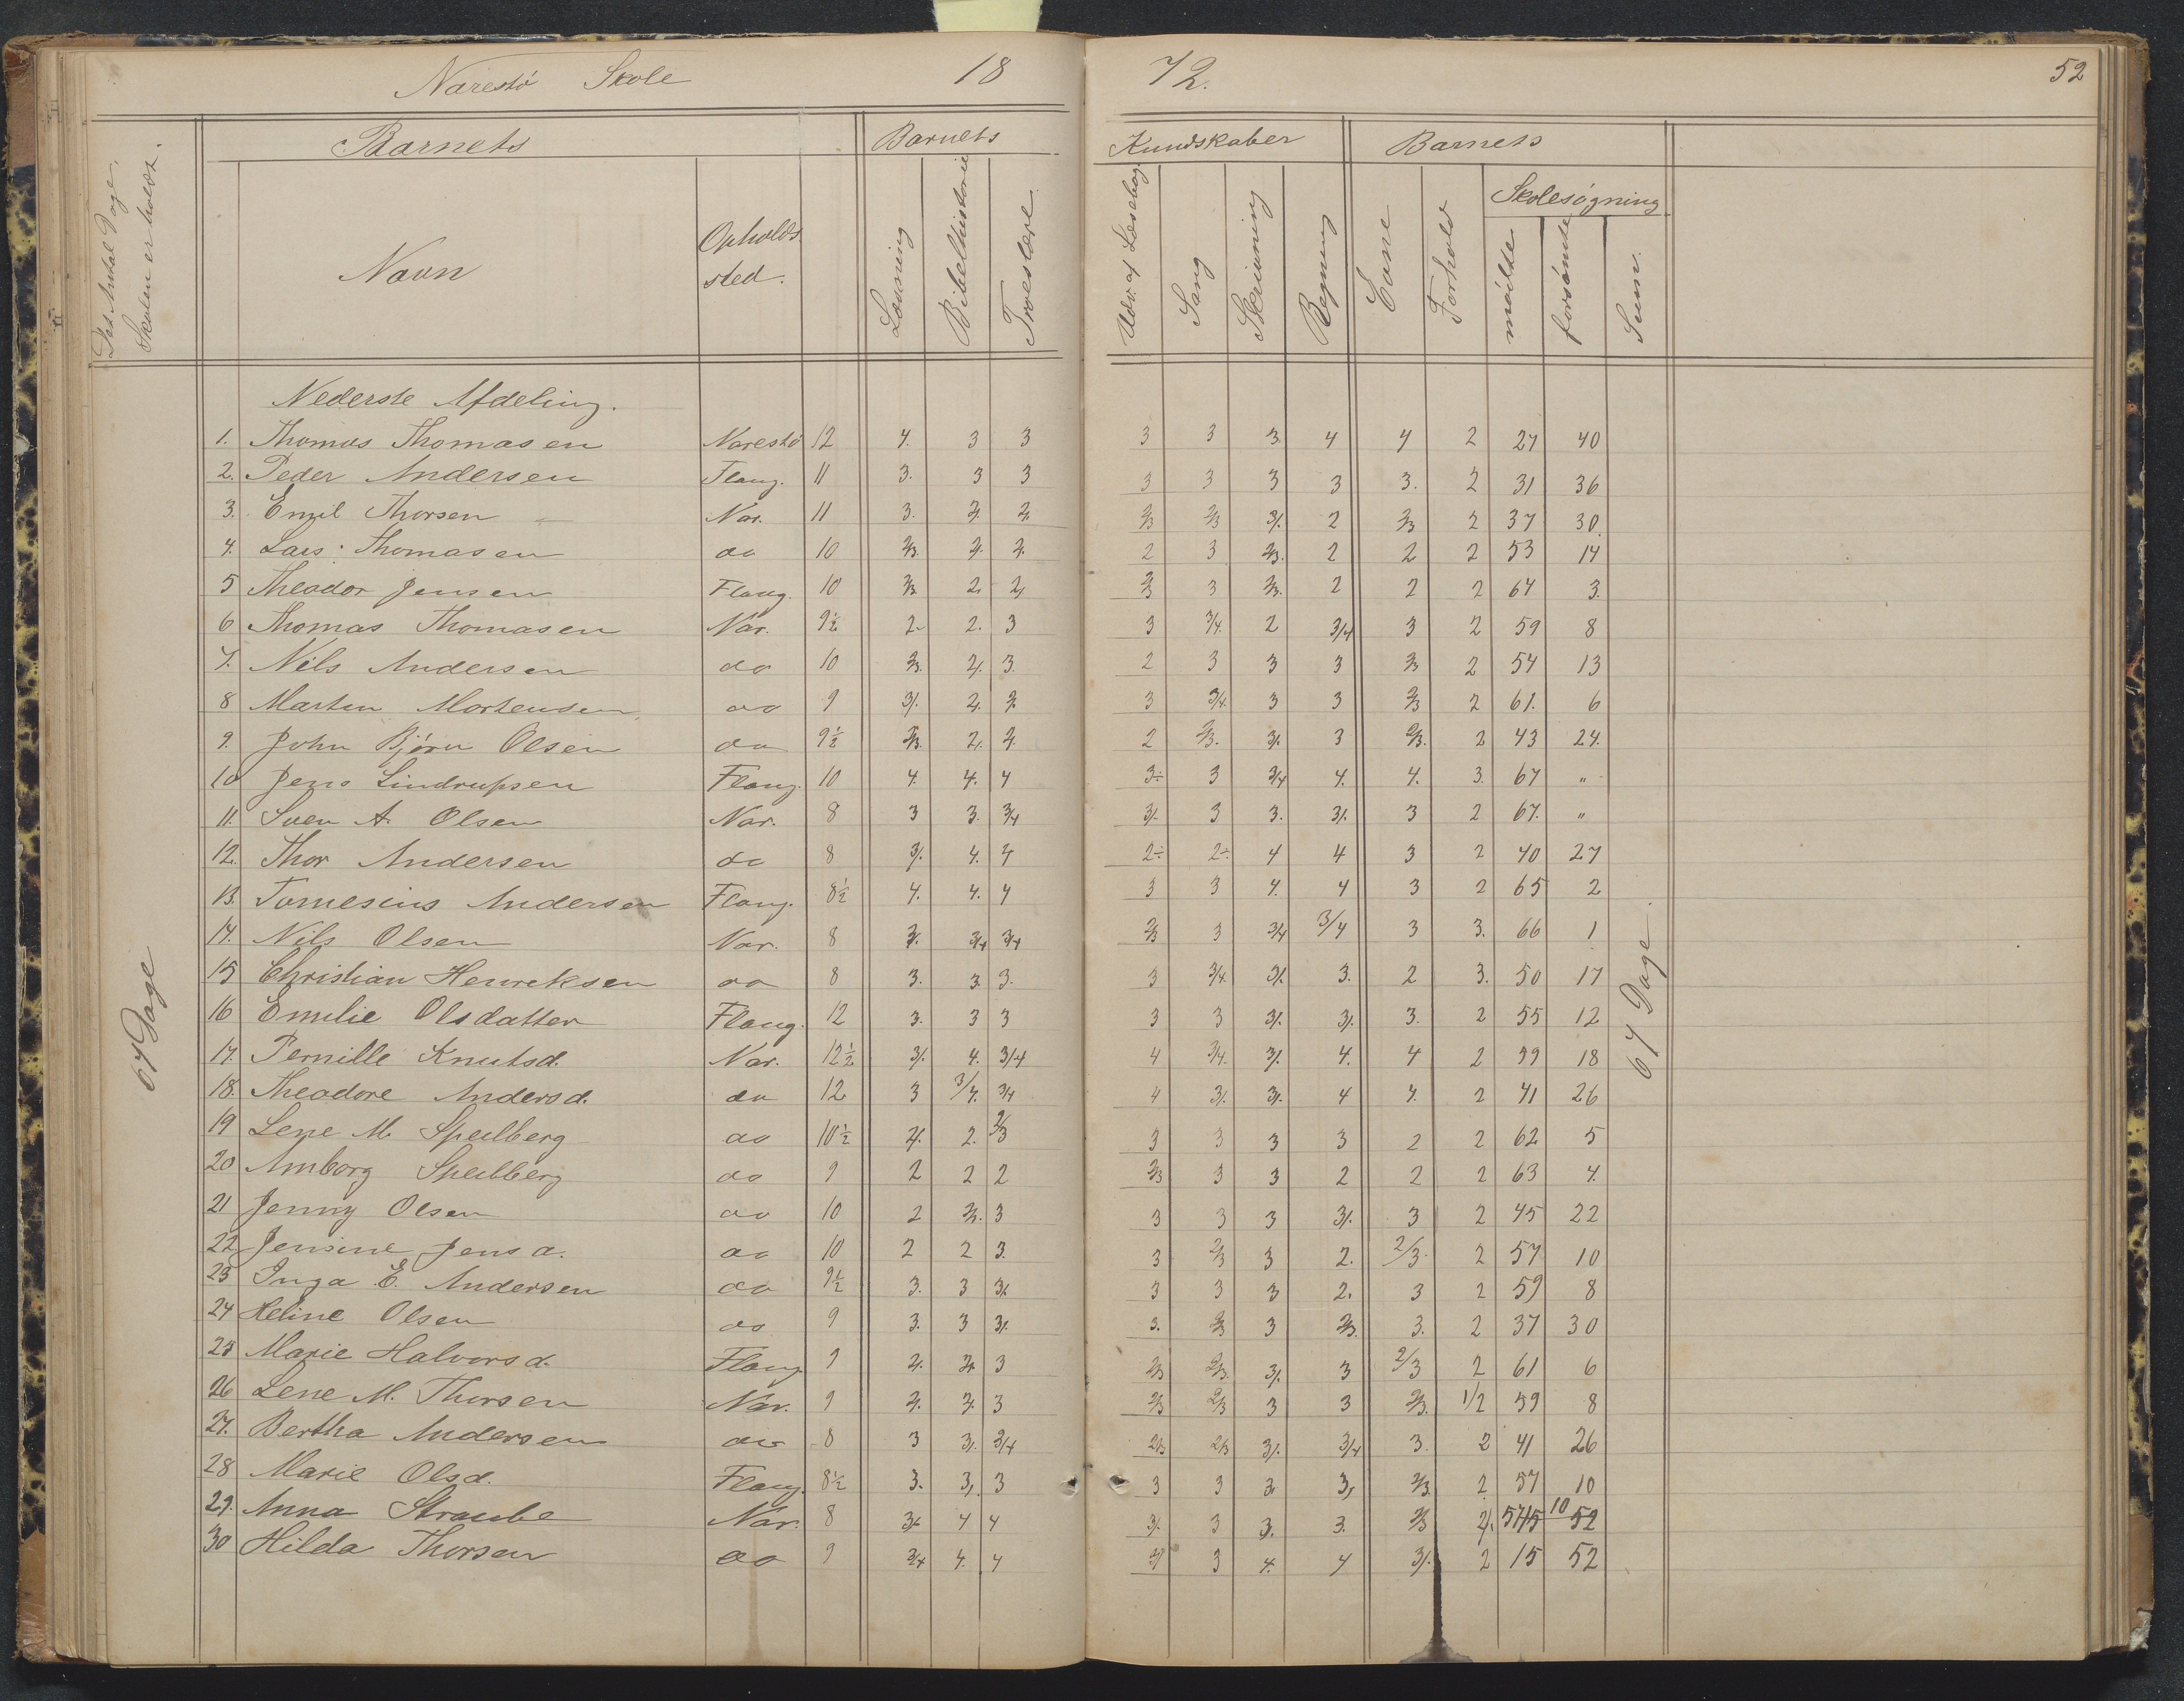 Narestö Skole 18 72. 52
Det Antal Dage Skolen er holdt.
Barnets Barnets Kundskaber Barnets
Navn Opholds sted. Læsning Bibelhistorie Troeslære Udv. af Læsebog Sang Skrivning Regning Evne Forhold Skolesøgning mødte forsømte Sum.
Nederste Afdeling.
1. Thomas Thomasen Narestö 12 4. 3 3 3 3 3. 4 4 2 27 40
2. Peder Andersen Flang. 11 3. 3 3 3 3 3 3 3. 2 31 36
3. Emil Thorsen Nar. 11 3. 2/. 2/. 2/3 2/3 3/. 2 2/3 2 37 30.
4. Lars Thomasen do 10 2/3. 2/. 2/. 2 3 2/3. 2 2 2 53 14
5 Theodor Jensen Flang. 10 2/3 2. 2/ 2/3 3 2/3. 2 2 2 64 3.
6 Thomas Thomasen Nar. 9½ 2 2. 3 3 3/4. 2 3/4 3 2 59 8
7. Nils Andersen do 10 2/3. 2/. 3. 2 3 3 3 2/3 2 54 13
8 Martin Mortensen do 9 3/. 2/. 2/. 3 3/4. 3 3 2/3 2 61. 6
9. John Bjørn Olsen do 9½ 2/3. 2/. 2/. 2 2/3. 3/. 3 2/3. 2 43 24.
10 Jens Lindrupsen Flang. 10 4. 4. 4 3÷ 3 3/4 4. 4. 3. 67 "
11. Sven A. Olsen Nar. 8 3 3. 3/4 3/. 3 3. 3/. 3 2 67. "
12. Thor Andersen do 8 3/. 4. 4 2÷ 2÷ 4 4 3 2 40 27
13. Tomesius Andersen Flang. 8½ 4. 4. 4 3 3 4. 4 3 2 65 2
14. Nils Olsen Nar. 8 3/. 3/4 3/4 2/3 3 3/4 3/4 3 3. 66 1
15 Christian Henreksen do 8 3. 3. 3. 3 3/4. 3/. 3. 2 3. 50 17
16 Emilie Olsdatter Flang. 12 3. 3 3 3 3 3/. 3/. 3. 2 55 12
17. Pernille Knutsd. Nar. 12½ 3/. 4. 3/4 4 3/4. 3/. 4. 4 2 49 18
18. Theodore Andersd. do 12 3 3/4. 3/4 4 3/. 3/. 4 4. 2 41 26
19 Lene M. Speilberg do 10½ 2/. 2. 2/3 3 3 3 3 2 2 62 5
20 Amborg Speilberg do 9 2 2 2 2/3 3 3 2 2 2 63 4.
21 Jenny Olsen do 10 2 2/3. 3 3 3 3 3/. 3 2 45 22
22 Jensine Jensd. do 10 2 2 3. 3 2/3 3 2. 2/3. 2 57 10
23 Inga E. Andersen do 9½ 3. 3 3/. 3 3 3 2. 3 2 59 8
24 Heline Olsen do 9 3. 3 3/. 3. 2/3 3 2/3. 3. 2 37 30
25 Marie Halvorsd. Flang. 9 2/. 2/. 3 2/3 2/3. 3/. 3 2/3 2 61 6
26 Lene M. Thorsen Nar. 9 2/. 2/. 3 2/3 2/3 3 3 2/3. 1/2 59 8
27. Bertha Andersen do 8 3 3/. 3/4 2/3 2/3 3/. 3/4 3. 2 41 26
28 Marie Olsd. Flang. 8½ 3. 3/. 3 3 3 3 3/ 2/3. 2 57 10
29. Anna Straube Nar. 8 3/. 4 4 3/. 3 3. 3. 2/3 2/. 57 15 10 52
30 Hilda Thorsen do 9 3/4 4. 4 3/ 3 4. 4 3/. 2 15 52
67 Dage
67 Dage.